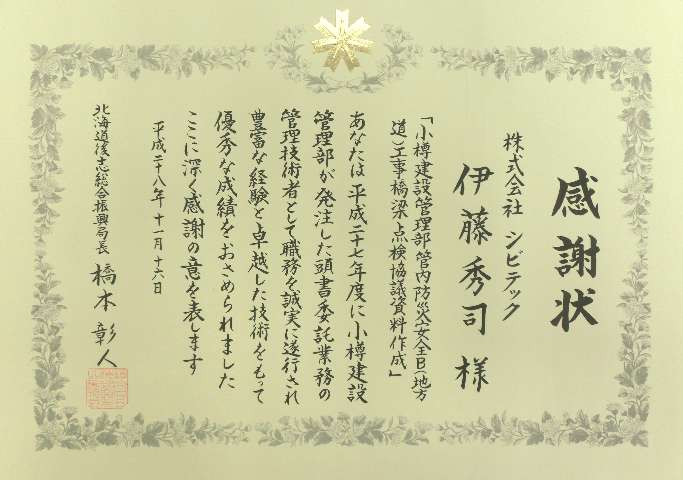 感謝状
株式会社 シビテック
伊藤秀司 様
「小樽建設管理部管内防災安全B(地方
道)工事橋梁点検協議資料作成」
あなたは平成二十七年度に小樽建設
管理部が発注した頭書委託業務の
管理技術者として職務を誠実に遂行され
豊富な経験と卓越した技術をもって
優秀な成績をおさめられました
ここに深く感謝の意を表します
平成二十八年十一月十六日
北海道後志総合振興局長 橋本彰人